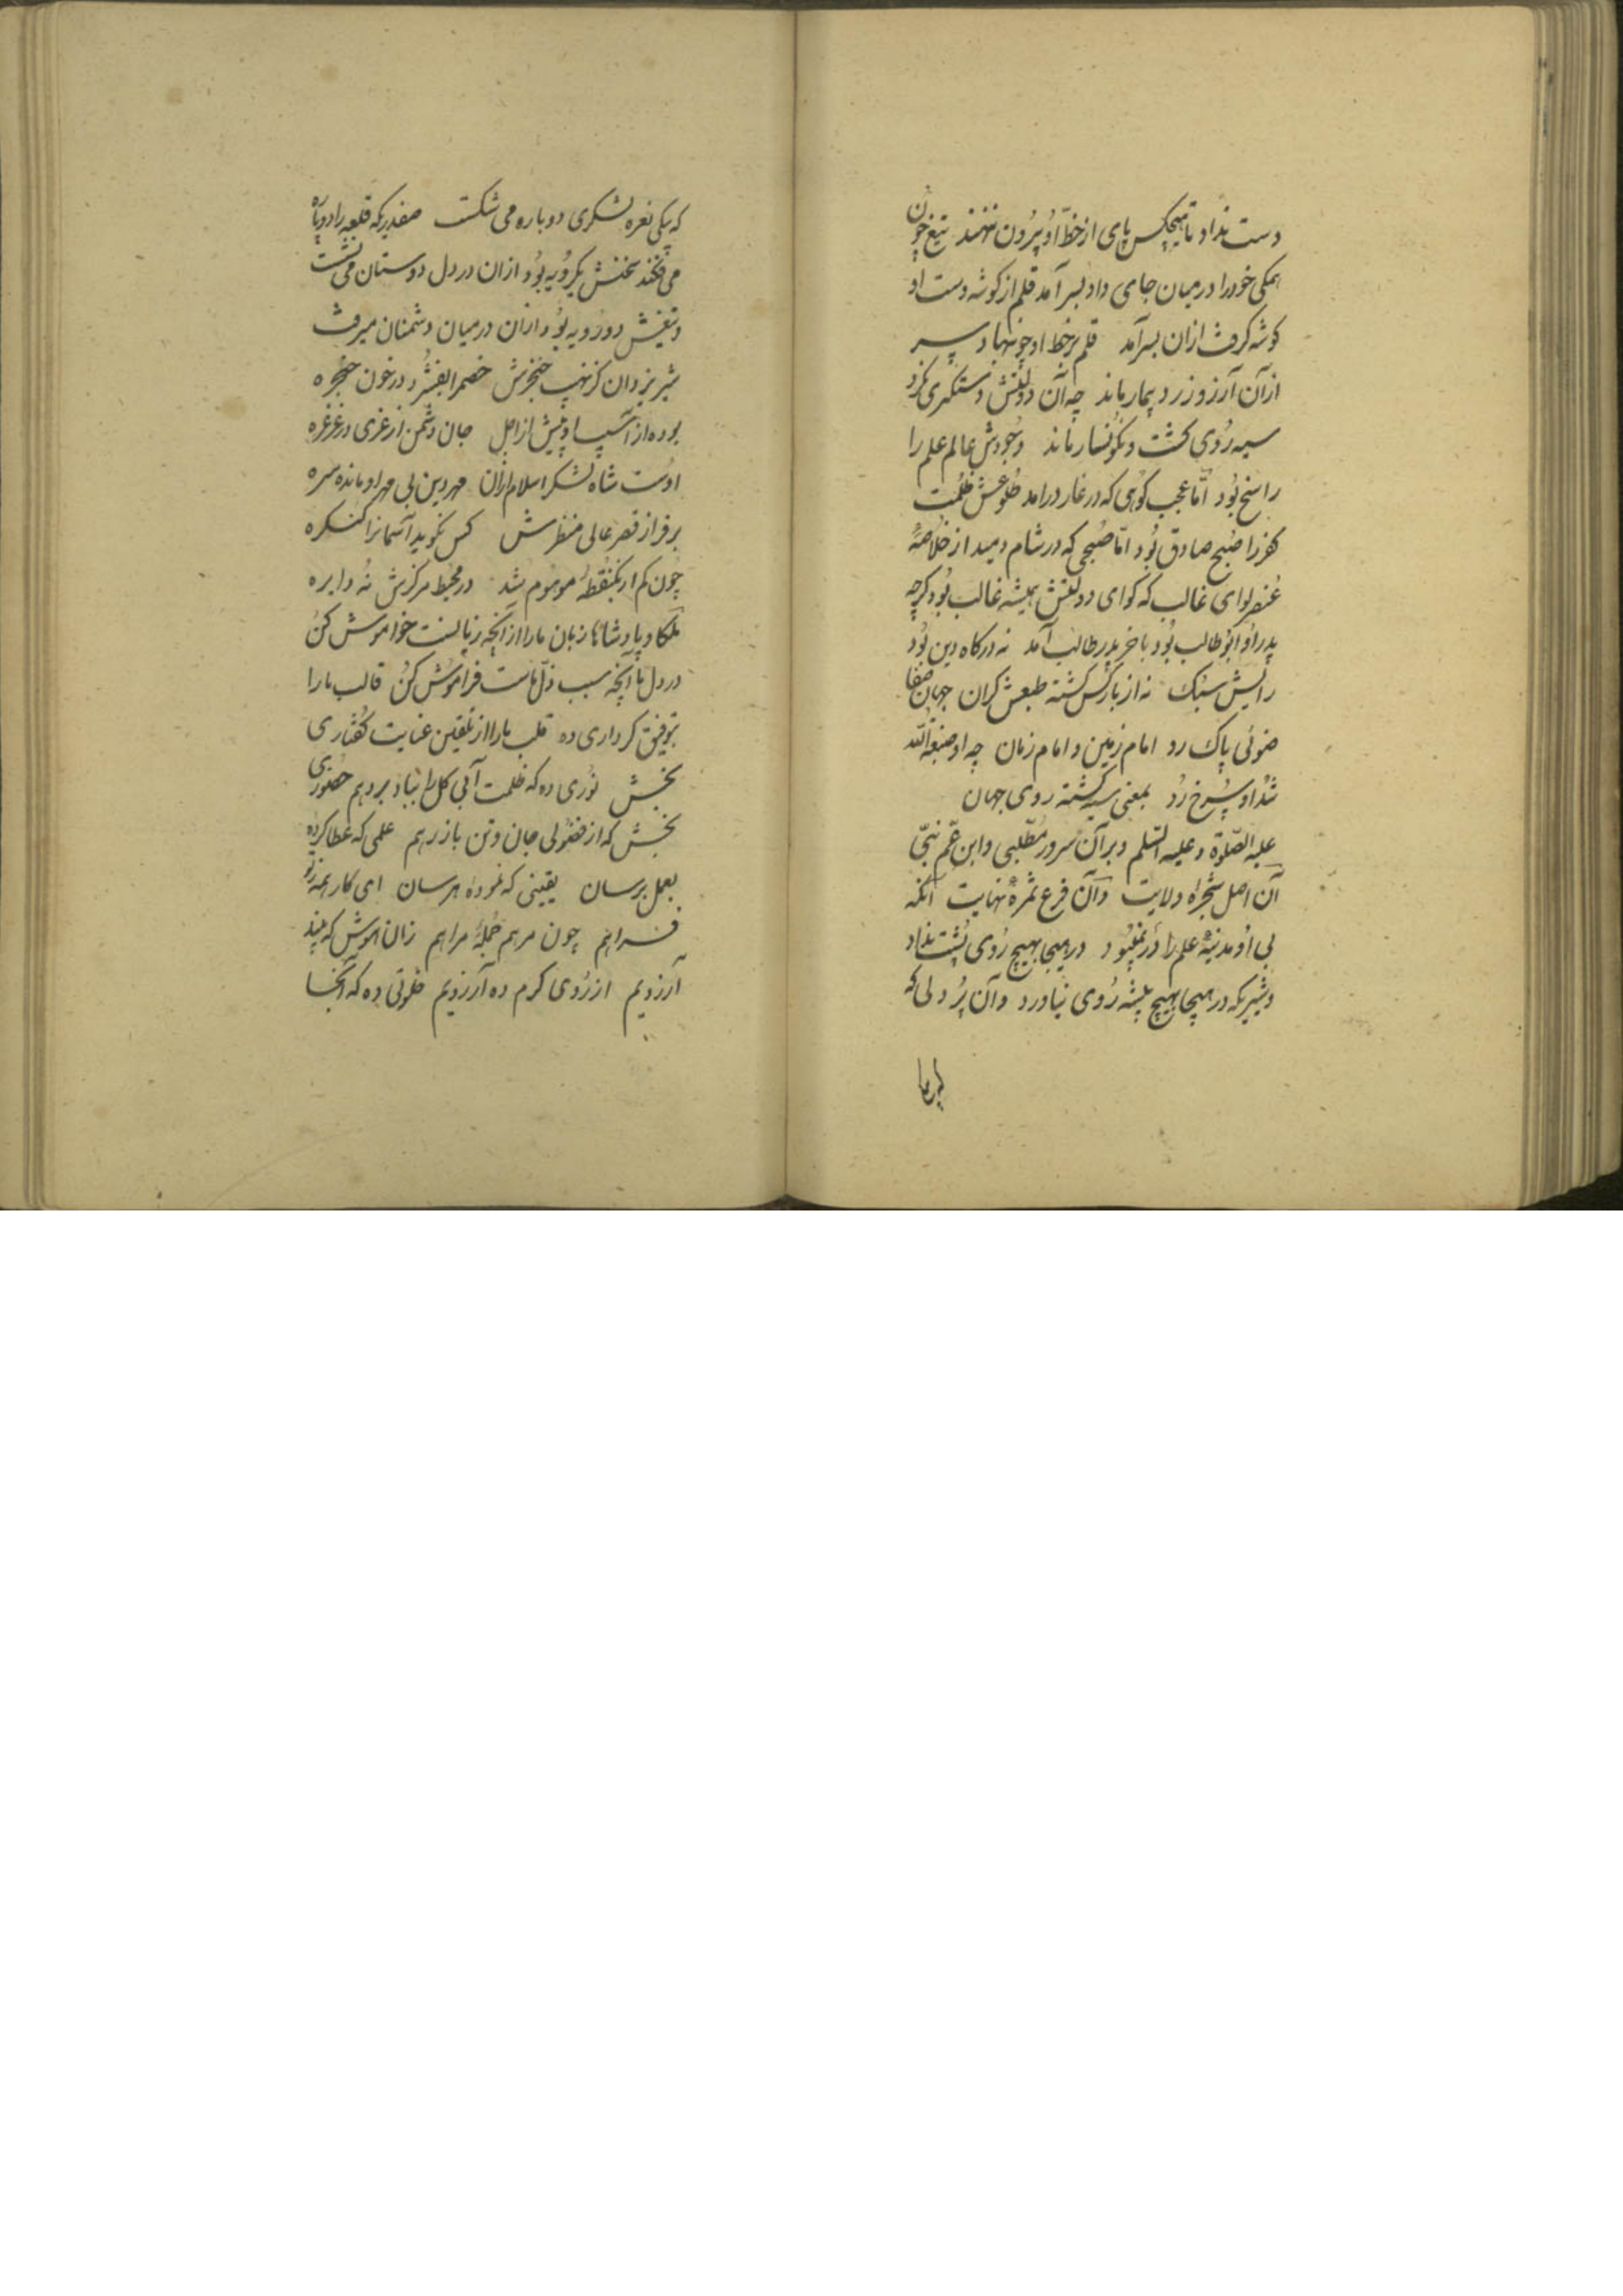 دست نداد تا هیچکس پای از خط او بیرون ننهند تیغ چون
همکی خود را در میان جای داد بسر آمد قلم از کوشه دست او
کوشه کرفت ازان بسر آمد قلم بر خط او چو ننهاد سر
از آن آرزو زرد و بیمار ماند چه آن دولتش دستکیری نکرد
سیه روی کشت و نکونسار ماند وجودش عالم علم را
راسخ بود اما عجب کوهی که در غار درآمد طلوعش ظلمت
کفر را صبح صادق بود اما صبحی که در شام دمید از خلاصهٔ
عنصر لوای غالب که لوای دولتش همیشه غالب بود کرچه
پدر او ابوطالب بود بآخر پدر طالب آمد نه درکاه دین بود
رایش سبک نه از بار کس کشته طبعش کران جهان صفا
ضوئی پاک رو امام زمین و امام زمان چه او صبغة الله
شد او سرخ رو بمعنی سیه کشته روی جهان
علیه الصلوة و علیه السلم و بر آن سرور مطلبی و ابن عم نبی
آن اصل شجراه ولایت و آن فرع ثمرهٔ نهایت آنکه
بی او مدینهٔ علم را در نبود در هیجا بهیچ روی پشت نداد
و شیریکه در هیجا بهیچ بیشه روی نیاورد و آن پر دلی که
که بیکی نعره لشکری دوباره می شکست صفدریکه قلعه را دوپاره
می فکند سخنش یکرویه بود ازان در دل دوستان می نشست
و تیغش دورویه بود ازان در میان دشمنان میرفت
شیر یزدان کز نهیب خنجرش خصم را بفشرد در خون حنجره
بوده از آسیب او پیش از اجل جان دشمن از غزی در غرغره
اوست شاه لشکر اسلام ازان مهر دین بی مهر او مانده سره
بر فراز قصر عالی منظرش کس نکوید آسمانرا کنکره
چون کم از یکنقطهٔ موهوم شد در محیط مرکزش نه دایره
ملکا و پادشاها زبان ما را از آنچه زیانست خواموش کن
در دل ما آنچه سبب ذل ماست فراموش کن قالب ما را
توفیق کرداری ده قلب ما را از تلقین عنایت کفتاری
بخش نوری ده که ظلمت آبی کل را بباد بردهم حضوری
بخش که از فضولی جان و تن باز رهم علمی که عطا کرده
بعمل برسان یقینی که نموده هر سان ای کار همه ز تو
فراهم چون مرهم جملهٔ مراهم
آرزویم از روی کرم ده آرزویم خلوتی ده که آنجا